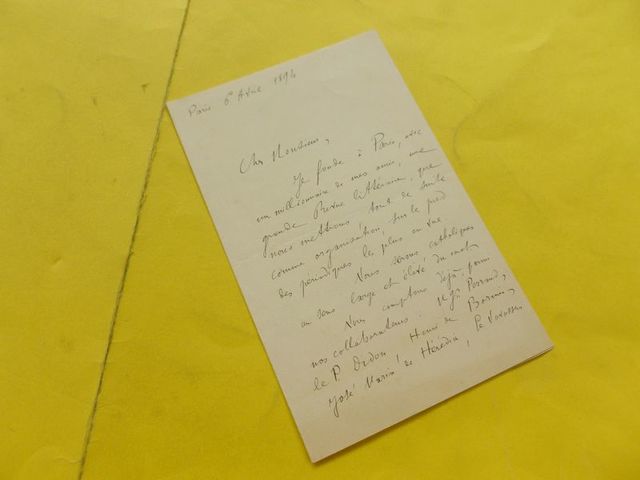 Paris 6 Avril 1894
Cher Monsieur,
Je fonde à Paris, avec
un millionnaire de mes amis, une
grande Revue littéraire, que
nous mettrons tout de suite
comme organisation, sur le pied
des périodiques les plus en vue
Nous serons catholiques
au sens large et élevé du mot.
Nous comptons déjà parmi
nos collaborateurs: Mgr
le P. Didon, Henri de Bornier,
José Maria de Hérédia, Le Vavasseur